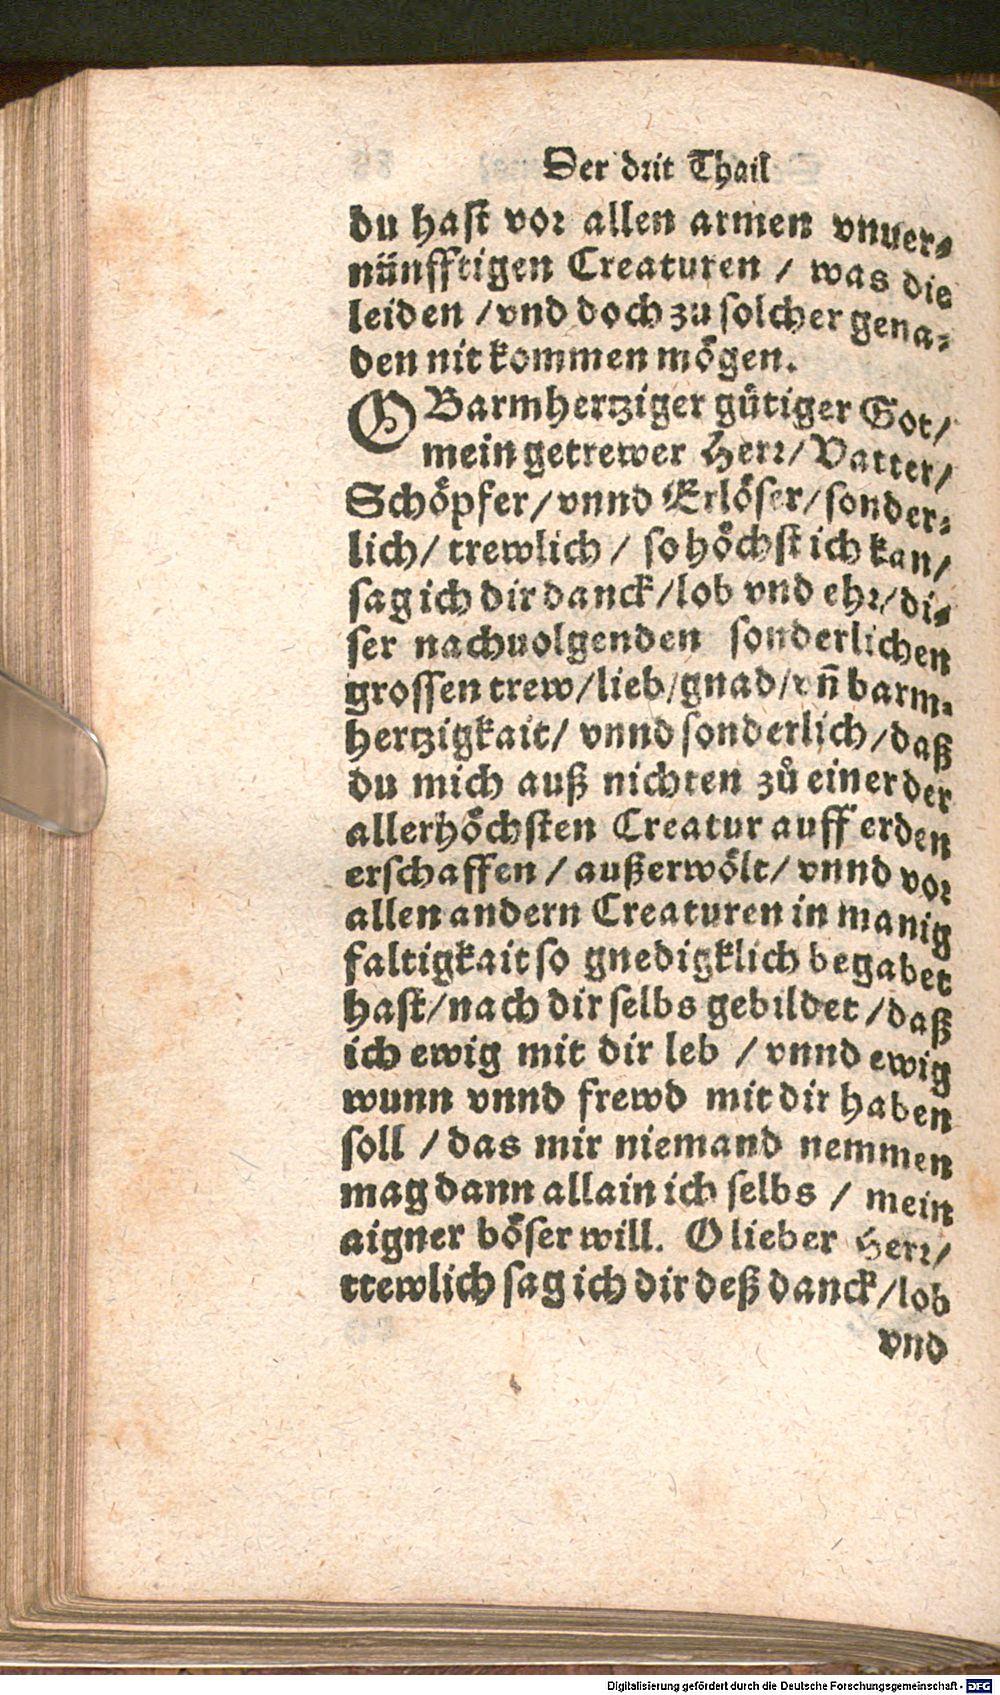 Der drit Thail
du hast vor allen armen vnuer-
nünfftigen Creaturen / was die
leiden / vnd doch zu solcher gena-
den nit kommen mögen.
O Barmhertziger gütiger Got /
mein getrewer Herr / Vatter /
Schöpfer / vnnd Erlöser / sonder-
lich / trewlich / so höchst ich kan /
sag ich dir danck / lob vnd ehr / di-
ser nachuolgenden sonderlichen
grossen trew / lieb / gnad / vn̄ barm-
hertzigkait / vnnd sonderlich / daß
du mich auß nichten zů einer der
allerhöchsten Creatur auff erden
erschaffen / außerwölt / vnnd vor
allen andern Creaturen in manig
faltigkait so gnedigklich begabet
hast / nach dir selbs gebildet / daß
ich ewig mit dir leb / vnnd ewig
wunn vnnd frewd mit dir haben
soll / das mir niemand nemmen
mag dann allain ich selbs / mein
aigner böser will. O lieber Herr /
trewlich sag ich dir deß danck / lob
vnd
Digitalisierung gefördert durch die Deutsche Forschungsgemeinschaft - DFG